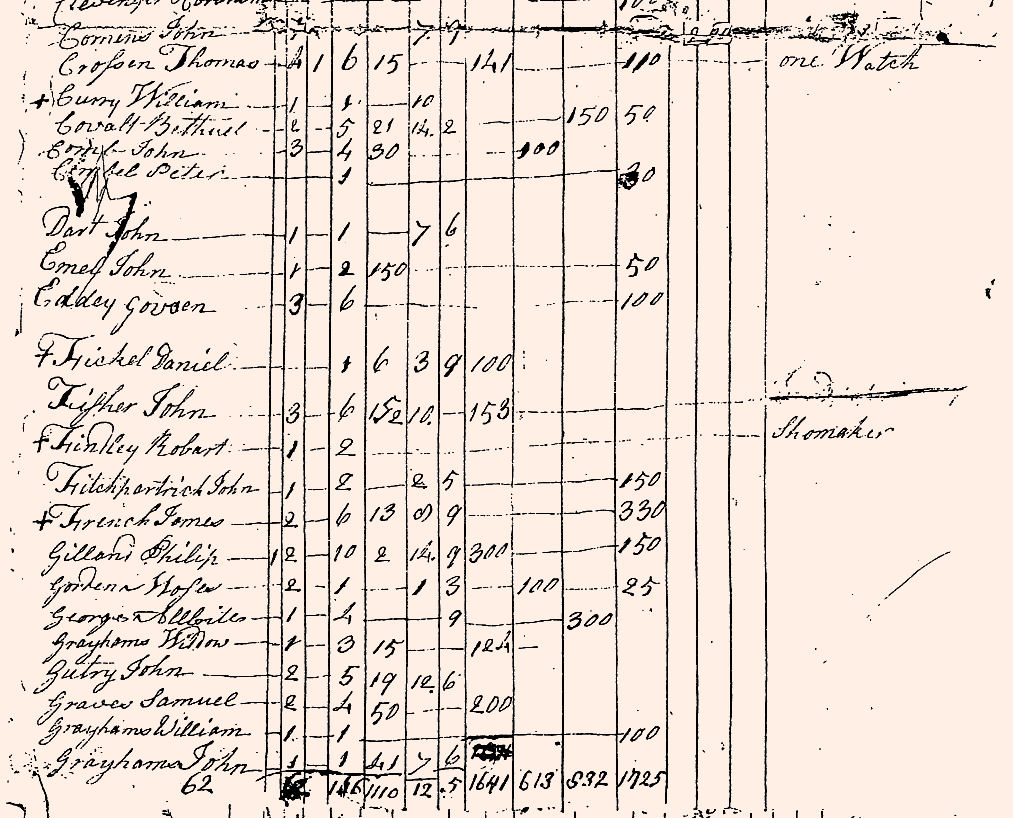 Comins John 7 9
Crossen Thomas 4 1 6 15 141 110 one Watch
+ Curry William 1 1 10
Covalt Bethuel 2 5 21 14 2 150 50
John 3 4 30 100
Peter 1 30
Dart John 1 1 7 6
Emey John 1 2 150 50
Eddey 3 6 100
+ Fickel Daniel 1 6 3 9 100
Fisher John 3 6 152 10 153
+ Findley Robart 1 2 Shomaker
Fitchpartrick John 1 2 2 5 150
+ French James 2 6 13 8 9 330
Gilland Philip 12 10 2 14 9 300 150
2 1 1 3 100 25
Georges 1 4 9 300
Grayhams Widow 1 3 15 124
Gutry John 2 5 19 12 6
Graves Samuel 2 4 50 200
Grayhams William 1 1 100
Grayhams John 1 1 41 7 6
62 1110 12 5 1641 613 832 1725